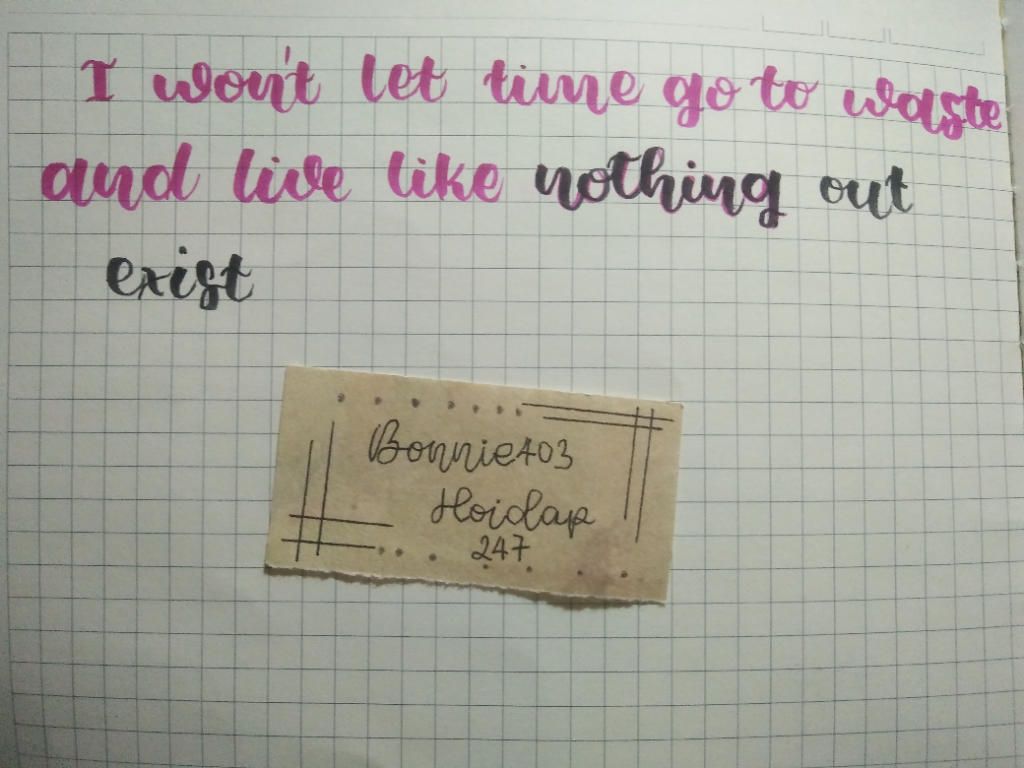 I won't let time go to waste
and live like nothing out
exist
Bonnie403
Hoidap
247